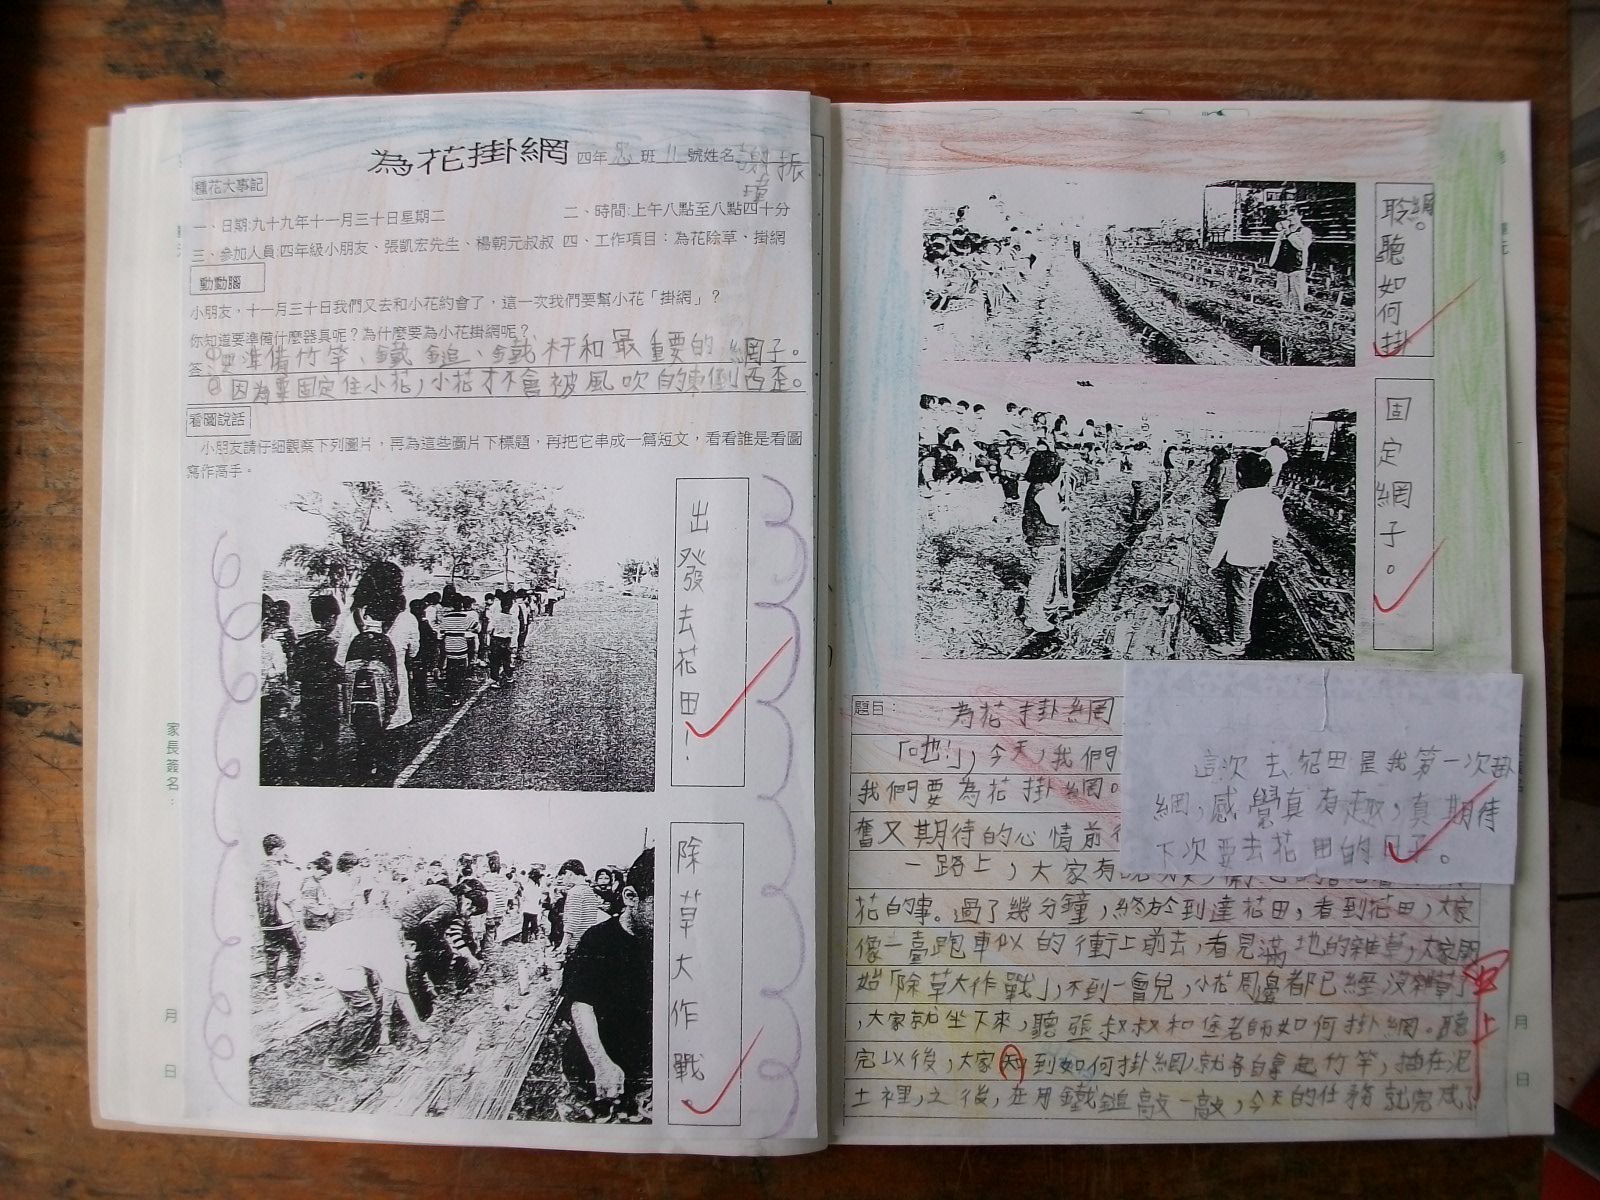 為花掛網 四年忠班11號姓名謝振
種花大事記
一、日期:九十九年十一月三十日星期二 二、時間:上午八點至八點四十分
三、參加人員:四年級小朋友、張凱宏先生、楊朝元叔叔 四、工作項目：為花除草、掛網
動動腦
小朋友，十一月三十日我們又去和小花約會了，這一次我們要幫小花「掛網」？
你知道要準備什麼器具呢？為什麼要為小花掛網呢？
答：①要準備竹竿、鐵鎚、鐵杆和最重要的網子。
②因為要固定住小花，小花才不會被風吹的東倒西歪。
看圖說話
小朋友請仔細觀察下列圖片，再為這些圖片下標題，再把它串成一篇短文，看看誰是看圖
寫作高手。
出發去花田！
除草大作戰。
家長簽名：
月 日
聆聽如何掛
網。
固定網子。
題目： 為花掛網
「吔！」，今天，我們
我們要為花掛網。
奮又期待的心情前
一路上，大家有
花的事。過了幾分鐘，終於到達花田，看到花田，大家
像一臺跑車似的衝上前去，看見滿地的雜草，大家開
始「除草大作戰」，不到一會兒，小花周邊都已經沒雜草了
，大家就坐下來，聽張叔叔和堡老師如何掛網。聽
完以後，大家知到如何掛網，就各自拿起竹竿，插在泥
土裡，之後，在用鐵鎚敲一敲，今天的任務就完成了
這次去花田是我第一次掛
網，感覺真有趣，真期待
下次要去花田的日子。
月 日